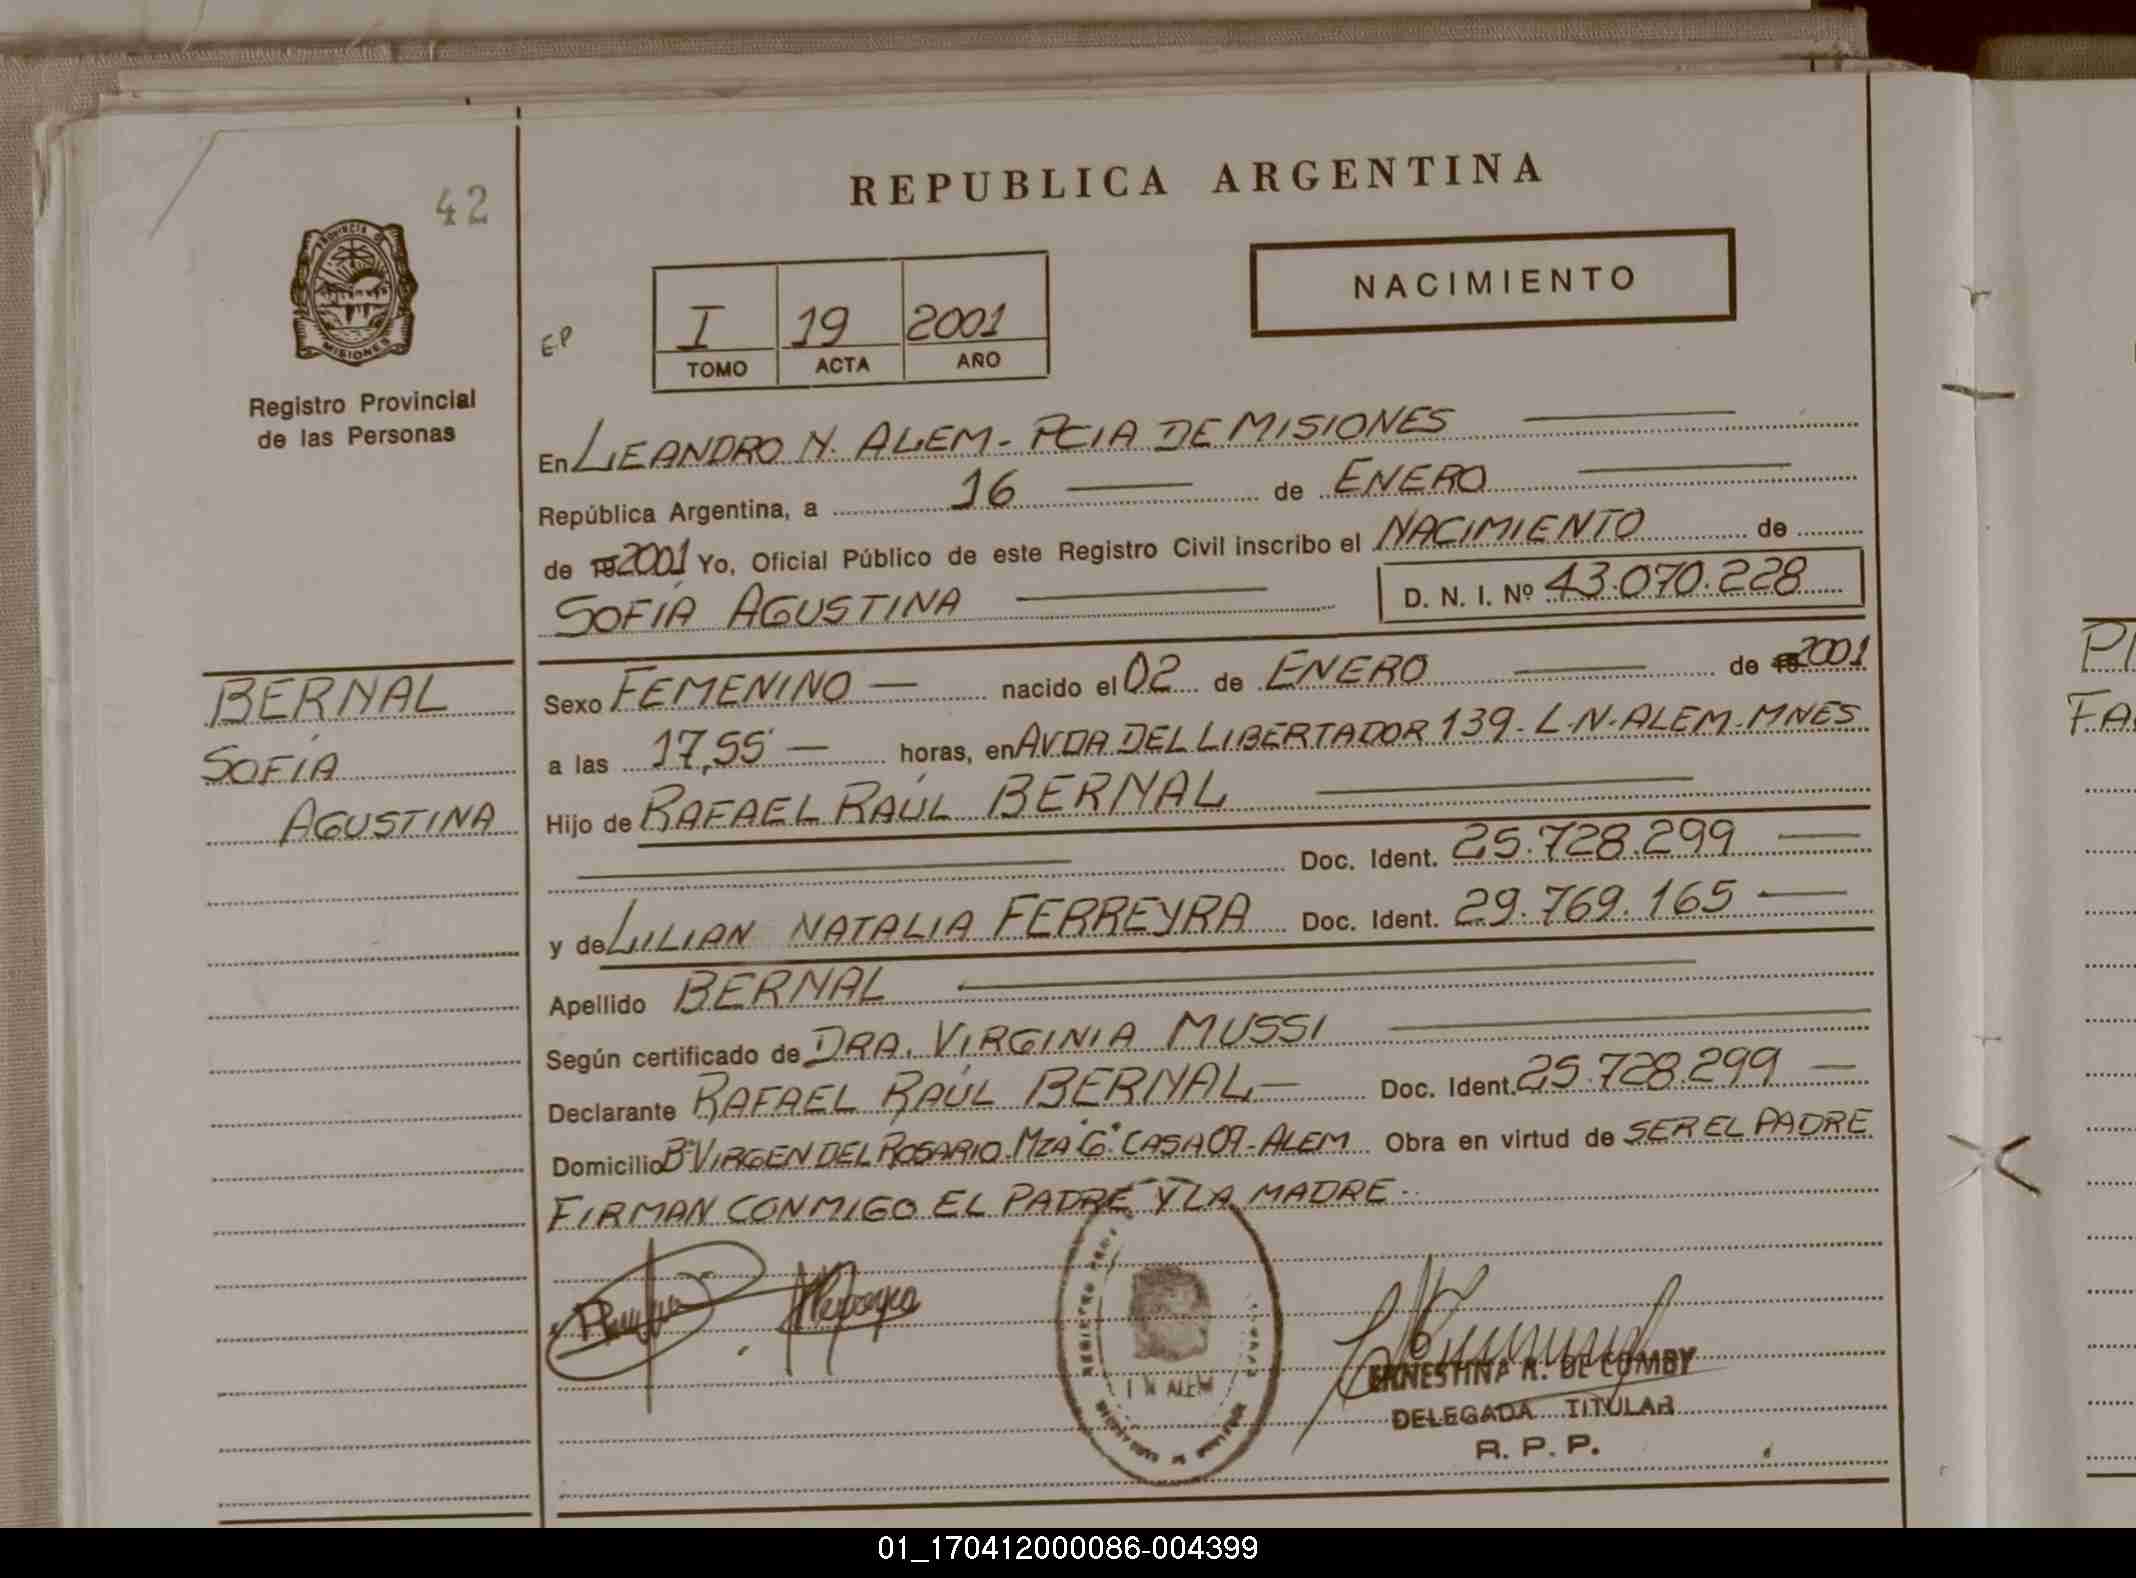 REPUBLICA ARGENTINA
42
PROVINCIA DE
MISIONES
NACIMIENTO
EP
I 19 2001
TOMO ACTA AÑO
Registro Provincial
de las Personas
En LEANDRO N. ALEM - PCIA DE MISIONES
República Argentina, a 16 de ENERO
de 19 2001 Yo, Oficial Público de este Registro Civil inscribo el NACIMIENTO de
SOFÍA AGUSTINA D. N. I. Nº 43.070.228
BERNAL
SOFÍA
AGUSTINA
Sexo FEMENINO — nacido el 02 de ENERO de 19 2001
a las 17,55 — horas, en AVDA DEL LIBERTADOR 139 - L.N. ALEM - MNES
Hijo de RAFAEL RAÚL BERNAL
Doc. Ident. 25.728.299 —
y de LILIAN NATALIA FERREYRA Doc. Ident. 29.769.165 —
Apellido BERNAL
Según certificado de DRA. VIRGINIA MUSSI
Declarante RAFAEL RAÚL BERNAL — Doc. Ident. 25.728.299 —
Domicilio Bº VIRGEN DEL ROSARIO. MZA "G" CASA 09 - ALEM Obra en virtud de SER EL PADRE
FIRMAN CONMIGO EL PADRE Y LA MADRE
REGISTRO
ALEM
ERNESTINA R. DE CUMBY
DELEGADA TITULAR
R. P. P.
01_170412000086-004399